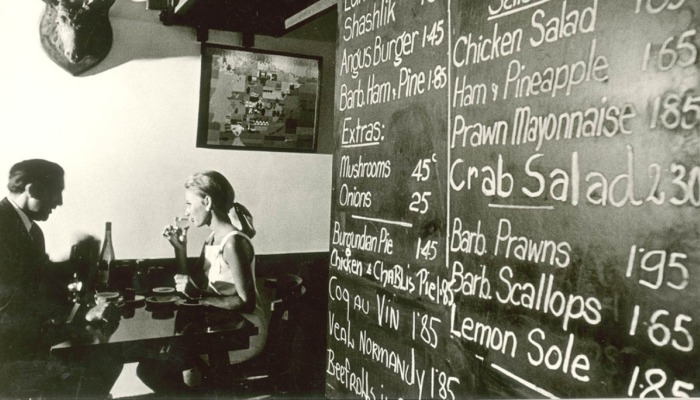 Shashlik
Angus Burger 1·45
Barb. Ham & Pine 1·85
Extras:
Mushrooms 45c
Onions 25
Burgundian Pie 1·45
Chicken & Chablis Pie 1·85
Coq au Vin 1·85
Veal Normandy 1·85
Chicken Salad
Ham & Pineapple 1·65
Prawn Mayonnaise 1·85
Crab Salad 2·30
Barb. Prawns 1·95
Barb. Scallops 1·65
Lemon Sole 1·85